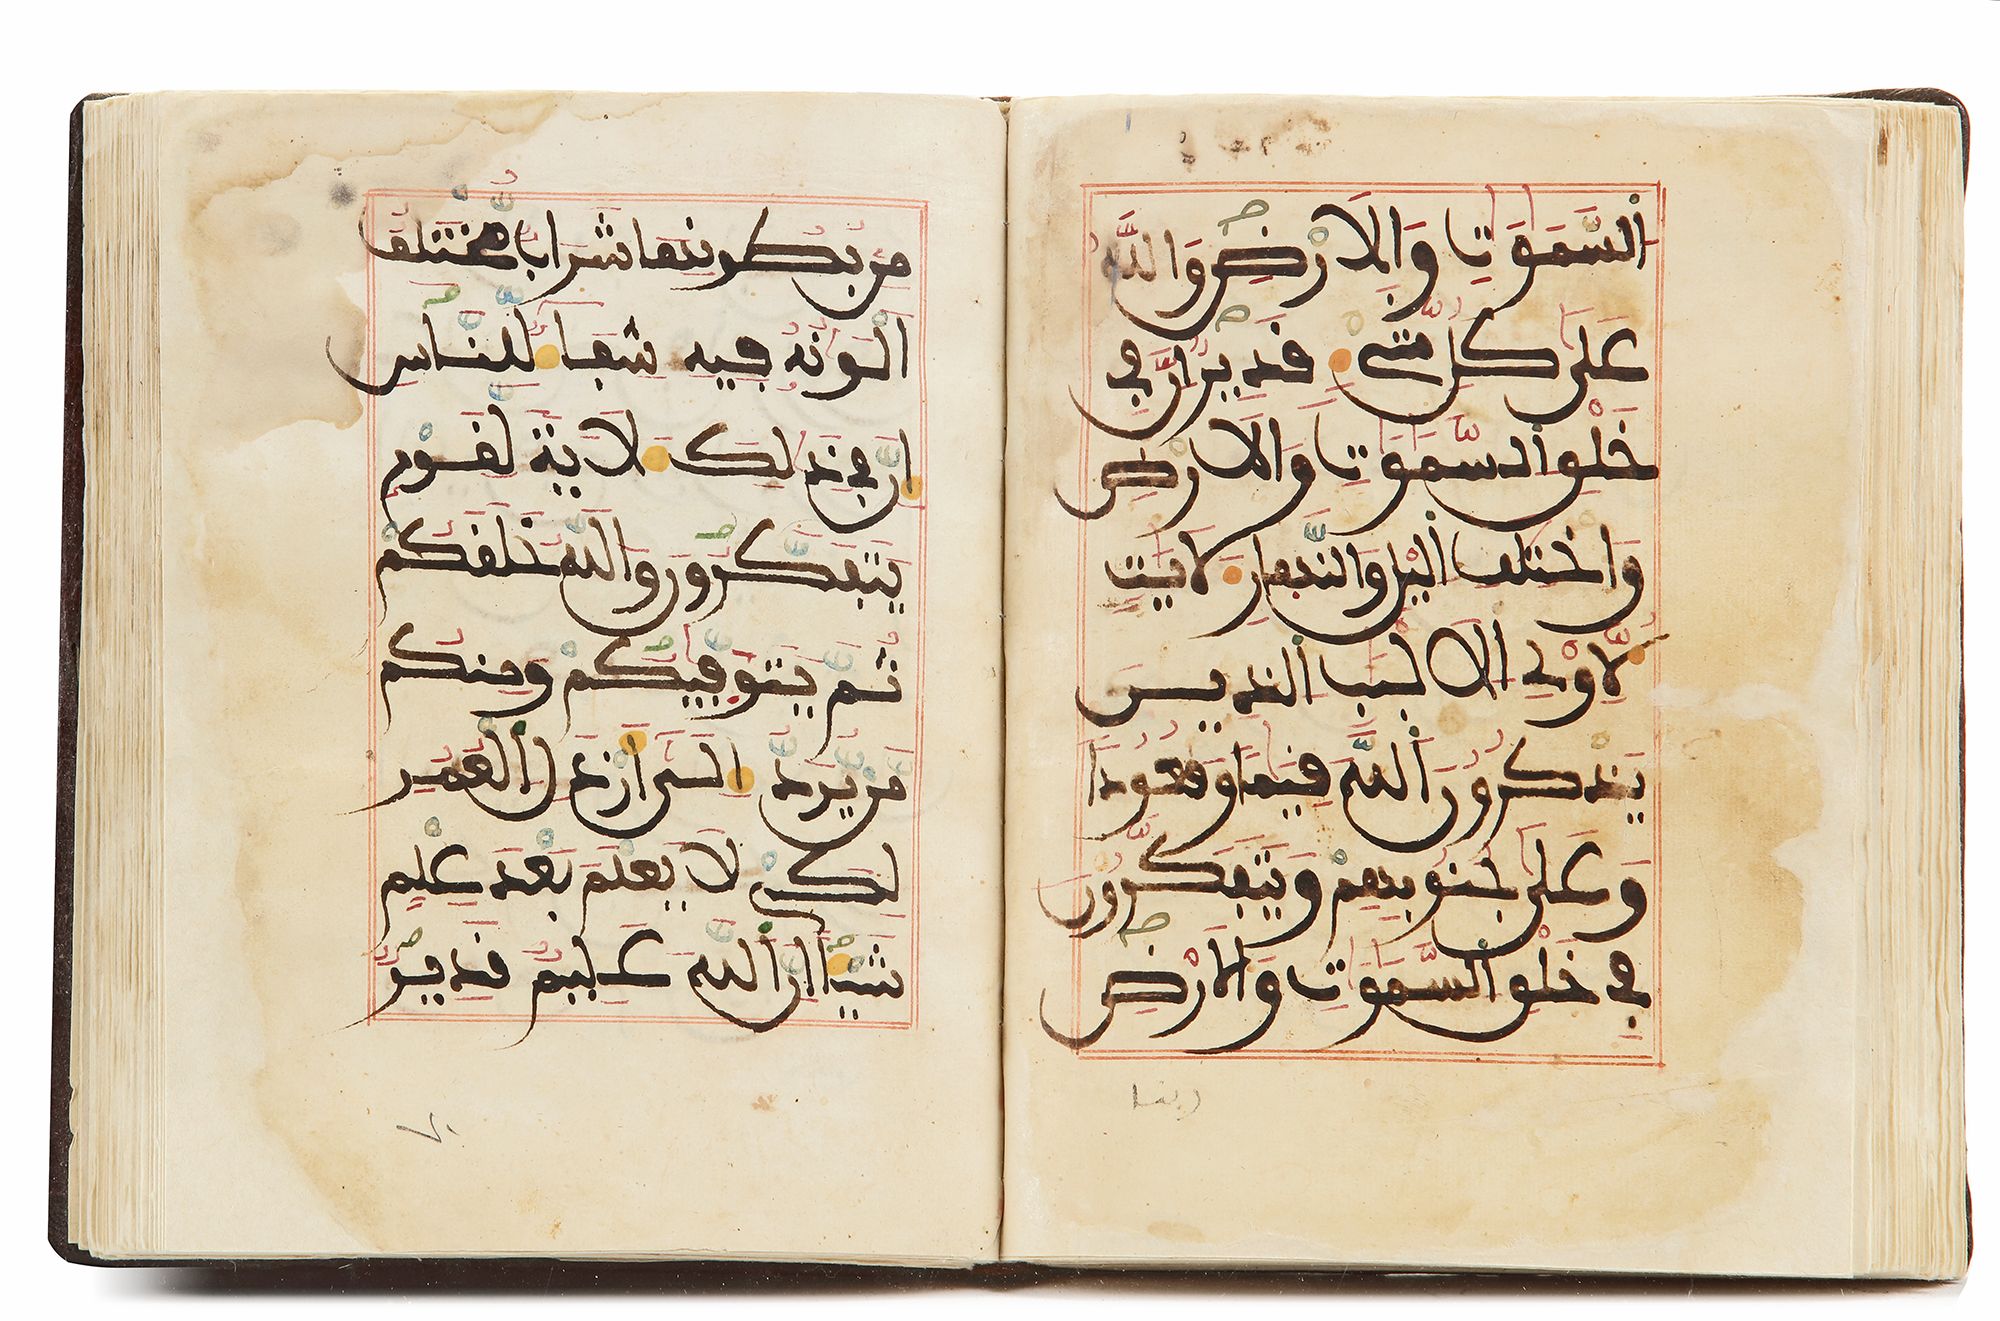 اَلسَّمَٰوَٰتِ وَالَارْضِ وَاللَّهُ
عَلَىٰ كُلِّ شَےْءٖ قَدِيرٌ اِنَّ فِے
خَلْقِ اِلسَّمَٰوَٰتِ وَالَارْضِ
وَاخْتِلَٰفِ اِليْلِ وَالنَّهَارِ لَأٓيَٰتٖ
لِّأُوْلِے اِلَالْبَٰبِ اِلذِينَ
يَذْكُرُونَ اَللَّهَ قِيَٰماٗ وَقُعُوداٗ
وَعَلَىٰ جُنُوبِهِمْ وَيَتَفَكَّرُونَ
فِے خَلْقِ اِلسَّمَٰوَٰتِ وَالَارْضِ
ربنا
مِنۢ بُطُونِهَا شَرَابٞ مُّخْتَلِفٌ
اَلْوَٰنُهُۥ فِيهِ شِفَآءٞ لِّلنَّاسِ
إِنَّ فِے ذَٰلِكَ لَأٓيَةٗ لِّقَوْمٖ
يَتَفَكَّرُونَ وَاللَّهُ خَلَقَكُمْ
ثُمَّ يَتَوَفَّيٰكُمْ وَمِنكُم
مَّنْ يُّرَدُّ إِلَىٰٓ أَرْذَلِ اِلْعُمُرِ
لِكَےْ لَا يَعْلَمَ بَعْدَ عِلْمٖ
شَيْـٔاً اِنَّ اَللَّهَ عَلِيمٞ قَدِيرٞ